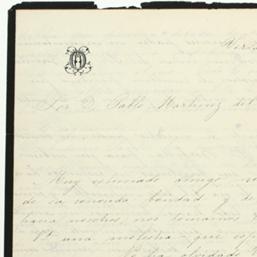 Sor D. Pablo Martinez del
Muy estimado amigo
de la conocida bondad y de
hacia nosotros, nos tomamos
Vd. una molestia que
olvidado